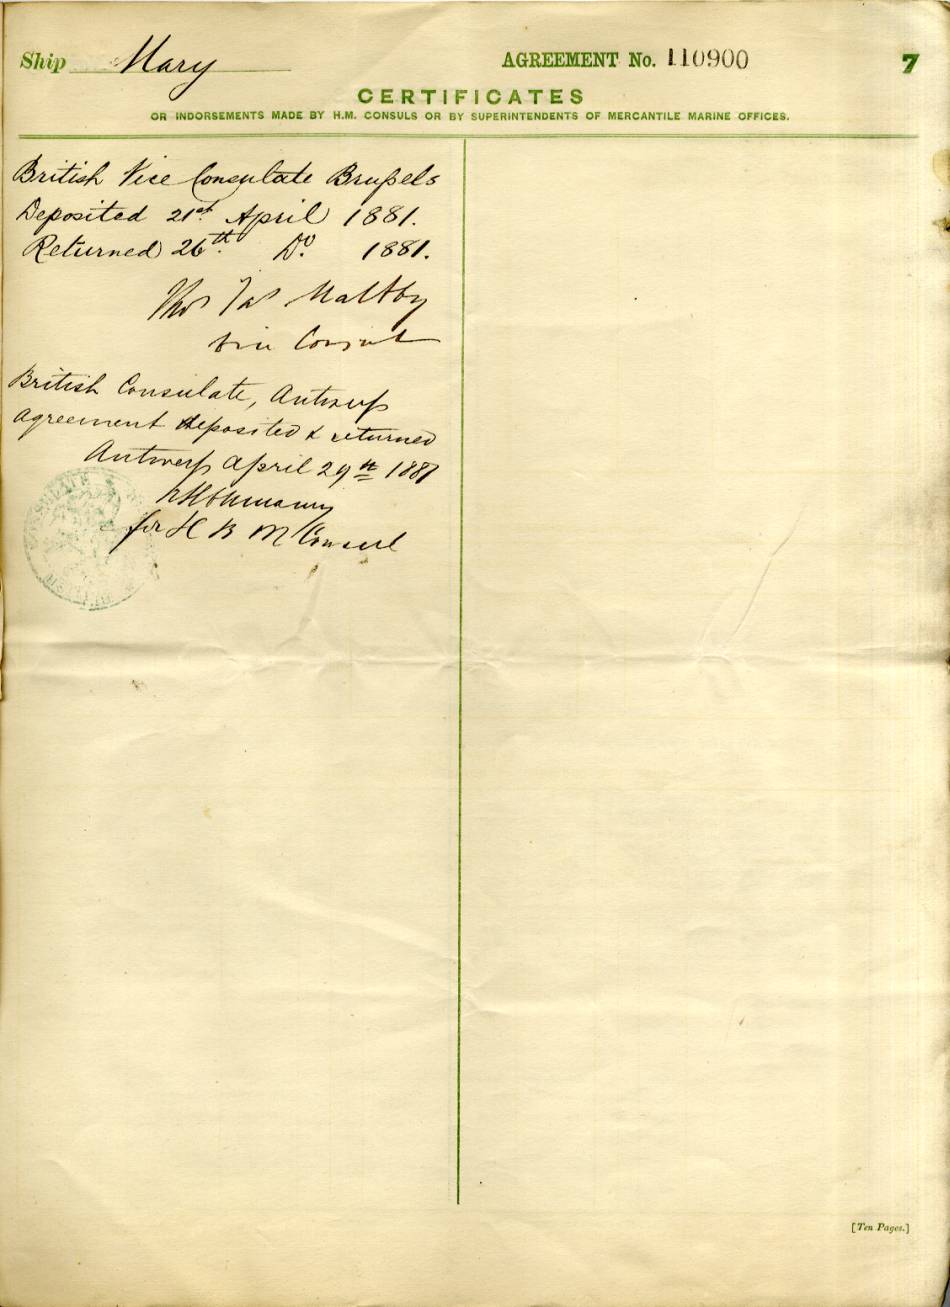 Ship Mary
AGREEMENT No. 110900
7
CERTIFICATES
OR INDORSEMENTS MADE BY H.M. CONSULS OR BY SUPERINTENDENTS OF MERCANTILE MARINE OFFICES.
British Vice Consulate Brußels
Deposited 21st April 1881.
Returned 26th. Do. 1881.
Thos Jas Maltby
Vice Consul
British Consulate, Antwerp
Agreement deposited & returned
Antwerp April 29th 1881
for H B M Consul
[Ten Pages.]